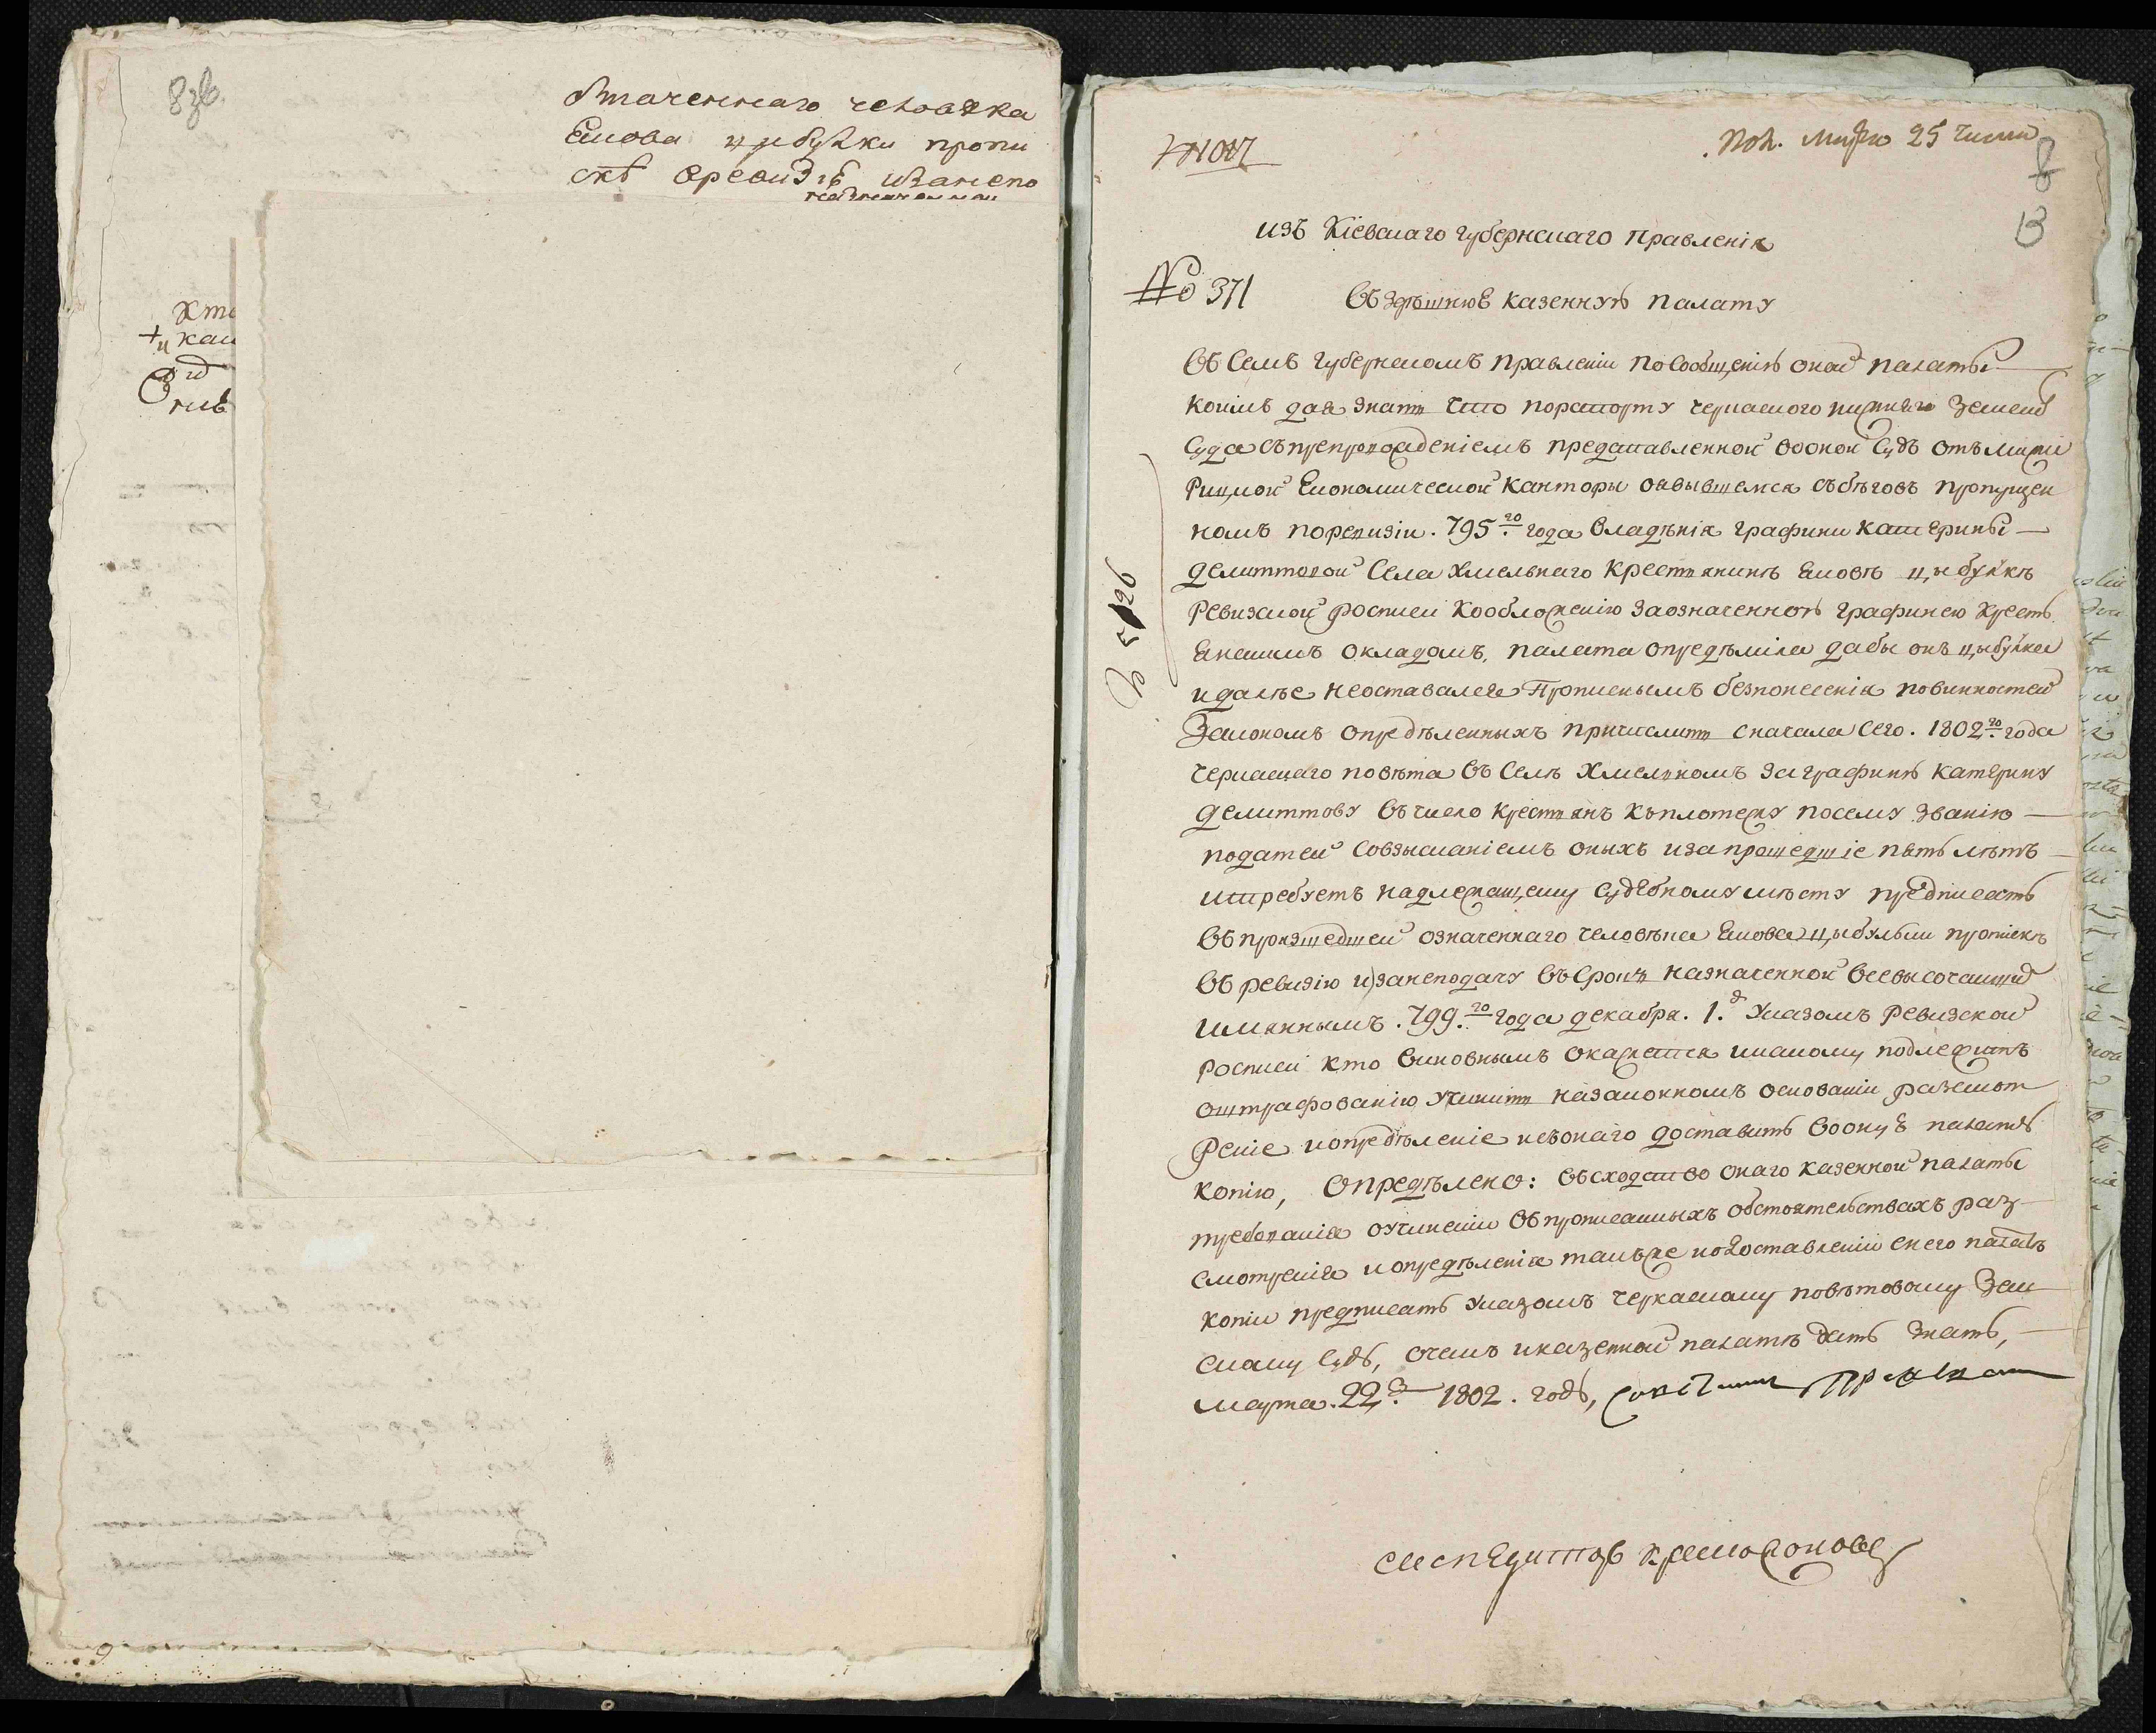 8зв.
ѣначеннаго человѣка
Якова Цыбулки пропи
скѣ в ревизіѣ изанепо
кто
+и
№ 1017
Пол. марта 25 числа
8
13
изъ Кіевскаго губернскаго правленія
№ 371
въ здѣшнюю казенную палату
въ 5126
Въ семъ губернскомъ правленіи по сообщенію оной палаты
коимъ дая знать что по рапорту черкаского нижняго земскаго
суда съ препровожденіемъ представленной во оной судъ отъ
экономической канторы о явившемся съ бѣговъ пропущен
номъ по ревизіи 795го года владѣнія графини Катерины
Делиттовой села Хмельнаго крестьянинѣ Яковѣ Цыбулкѣ
ревизской росписи ко обложенію за означенною графинею кресть
янскимъ окладомъ, палата опредѣлила дабы онъ Цыбулка
и далѣе неоставался прописнымъ безпонесенія повинностей
закономъ опредѣленныхъ причислить сначала сего 1802го года
черкаскаго повѣта въ селѣ Хмелномъ за графинѣ Катерину
Делиттову въ число крестьянъ къ плотежу посему званію
податей совзысканіемъ оныхъ и за прошедшіе пять лѣтъ
и требуетъ надлежащему судебному мѣсту предписать
въ произшедшей означеннаго человѣка Якова Цыбульки пропискѣ
въ ревизію и за неподачу въ срокъ назначенной всевысочайшимъ
имяннымъ 799го года декабря 1д указомъ ревизской
росписи кто виновнымъ окажется и какому подлежитъ
оштрафованію учинить на законномъ основаніи размот
реніе и опредѣленіе исъ онаго доставить во онуѣ палату
копію, опредѣлено: въ сходство онаго казенной палаты
требованія о учиненіи въ прописанныхъ обстоятельствахъ раз
смотренія и опредѣленія такъже и о доставленіи снего палатѣ
копіи предписать указомъ черкаскому повѣтовому зем
скому суду, о чемъ и казенной палатѣ дать знать,
марта 22д 1802 года,